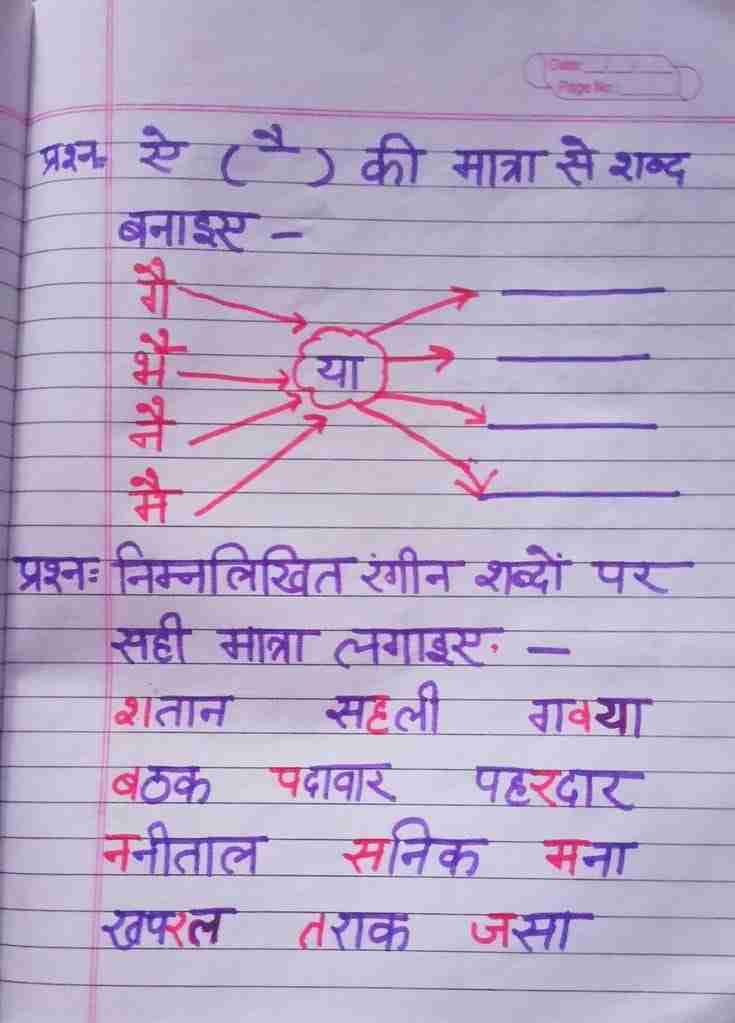 Date:
Page No.:
प्रश्न- ऐ ( ै ) की मात्रा से शब्द
बनाइए -
गै
भै
नै
मै
या
प्रश्नः निम्नलिखित रंगीन शब्दों पर
सही मात्रा लगाइए. -
शतान सहली गवया
बठक पदावार पहरदार
ननीताल सनिक मना
खपरल तराक जसा